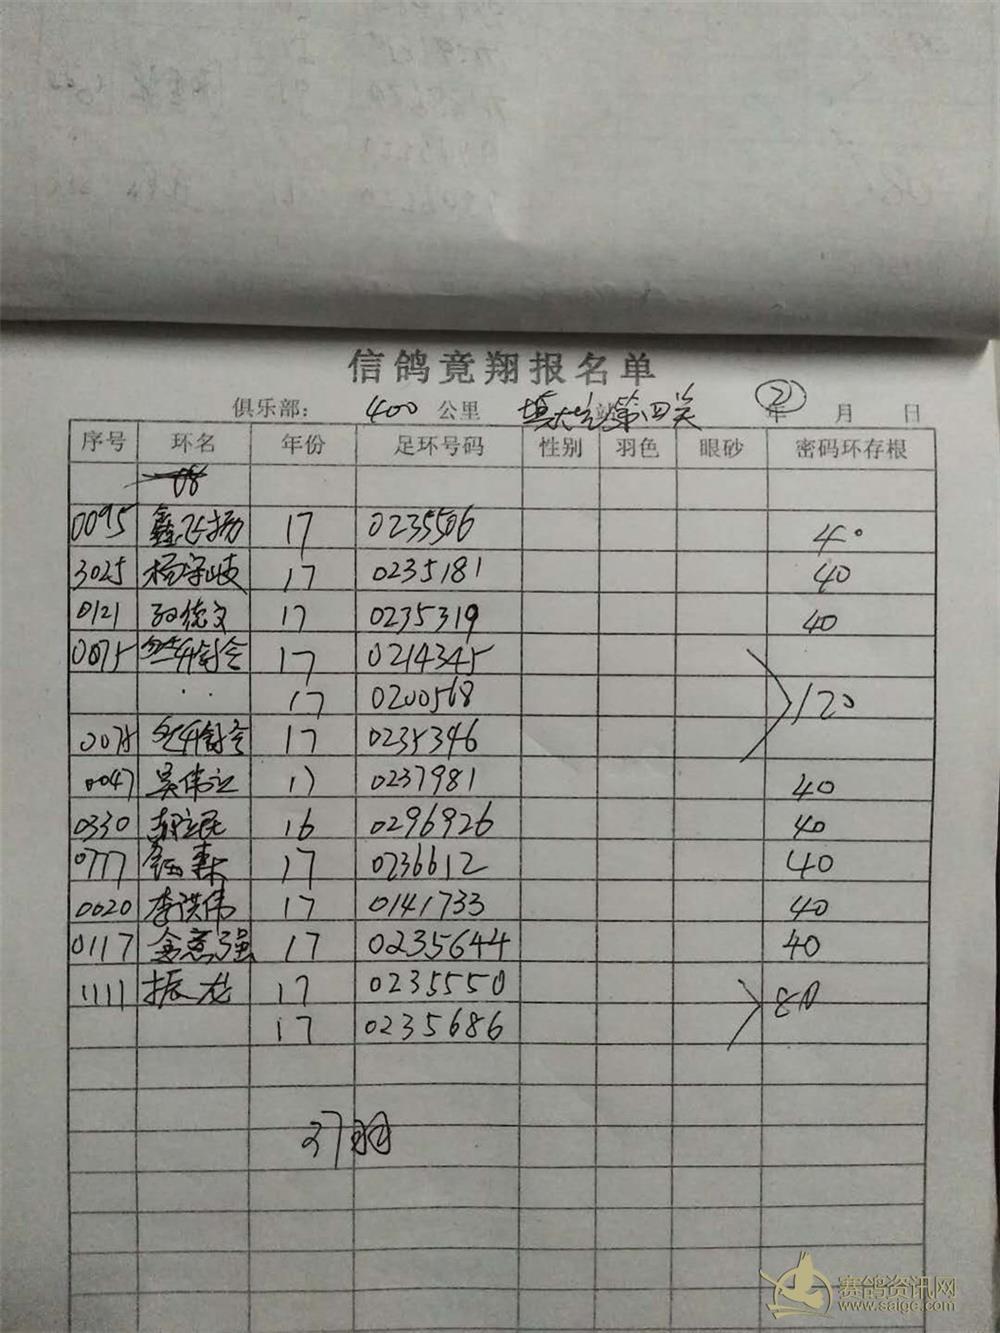 信鸽竟翔报名单
俱乐部： 400 公里 第四关 ② 年 月 日
序号 环名 年份 足环号码 性别 羽色 眼砂 密码环存根
0095 鑫飞扬 17 0235506 40
3025 杨守岐 17 0235181 40
0121 孙德文 17 0235319 40
0075 17 0214345
17 0200568 120
0075 17 0235346
0047 吴伟立 17 0237981 40
0330 胡立民 16 0296926 40
0777 森 17 0236612 40
0020 李洪伟 17 0141733 40
0117 金意强 17 0235644 40
1111 振龙 17 0235550 80
17 0235686
37羽
赛鸽资讯网
www.saige.com